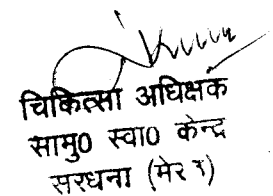 चिकित्सा अधिक्षक
सामु0 स्वा0 केन्द्र
सरधना